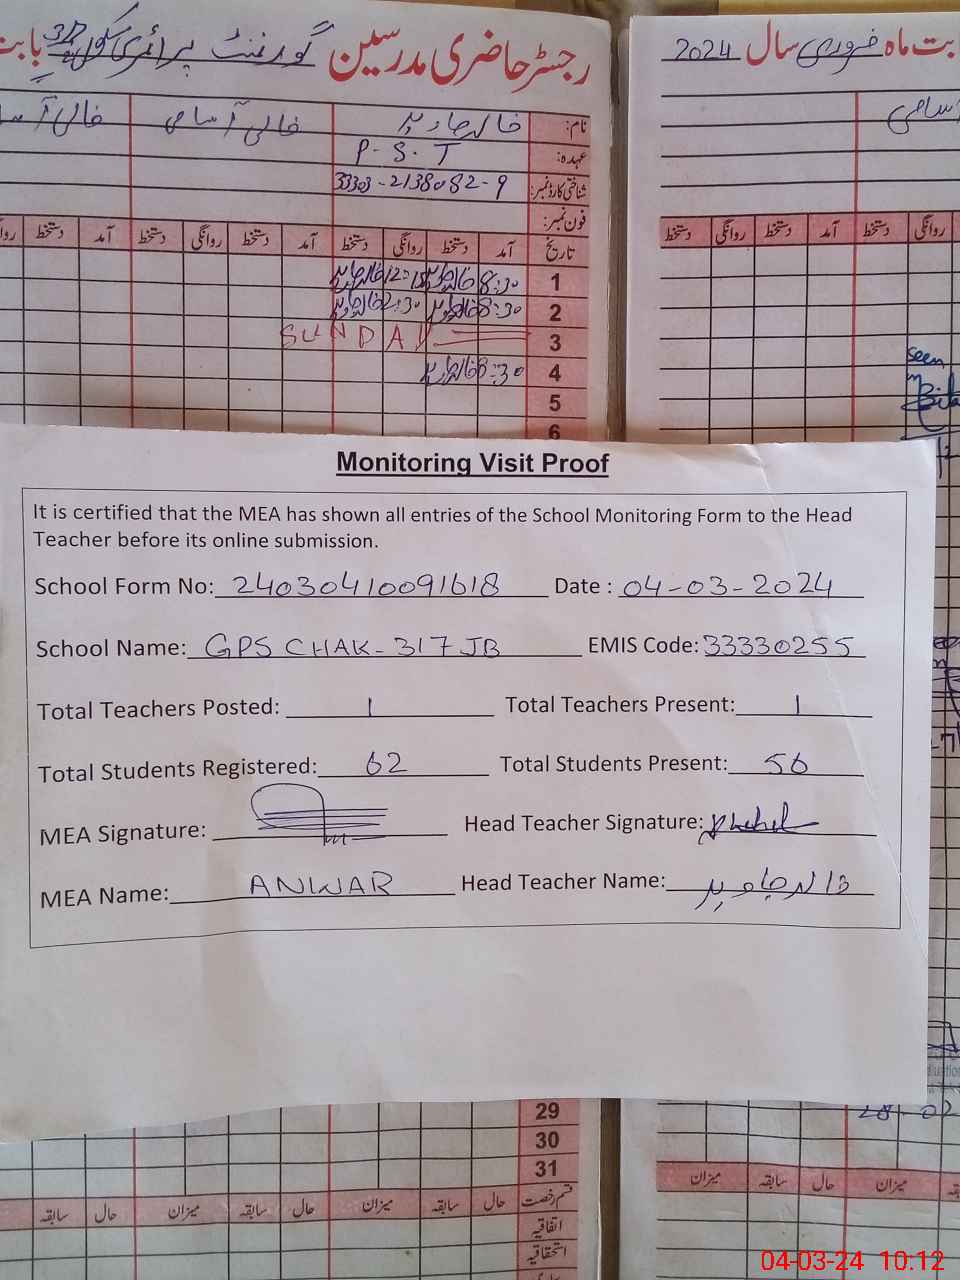 رجسٹر حاضری مدرسین گورنمنٹ پرائمری سکول 317 بابت
بت ماہ فروری سال 2024
نام: خالد جاوید خالی آسامی خالی آسا
آسامی
عہدہ: P.S.T
شناختی کارڈ نمبر: 33303-2138082-9
فون نمبر:
تاریخ آمد دستخط روانگی دستخط آمد دستخط روانگی دستخط آمد دستخط
روانگی دستخط آمد دستخط روانگی دستخط
1 8:30 خالد جاوید 12:15 خالد جاوید
2 8:30 خالد جاوید 2:30 خالد جاوید
3 SUNDAY
4 8:30 خالد جاوید
5
6
seen
Monitoring Visit Proof
It is certified that the MEA has shown all entries of the School Monitoring Form to the Head
Teacher before its online submission.
School Form No: 24030410091618 Date : 04-03-2024
School Name: GPS CHAK-317 JB EMIS Code: 33330255
Total Teachers Posted: 1 Total Teachers Present: 1
Total Students Registered: 62 Total Students Present: 56
MEA Signature: Head Teacher Signature:
MEA Name: ANWAR Head Teacher Name: خالد جاوید
29
28-02
30
31
قسم رخصت سابقہ حال میزان سابقہ حال میزان سابقہ حال میزان سابقہ
میزان حال سابقہ میزان
اتفاقیہ
استحقاقیہ
04-03-24 10:12